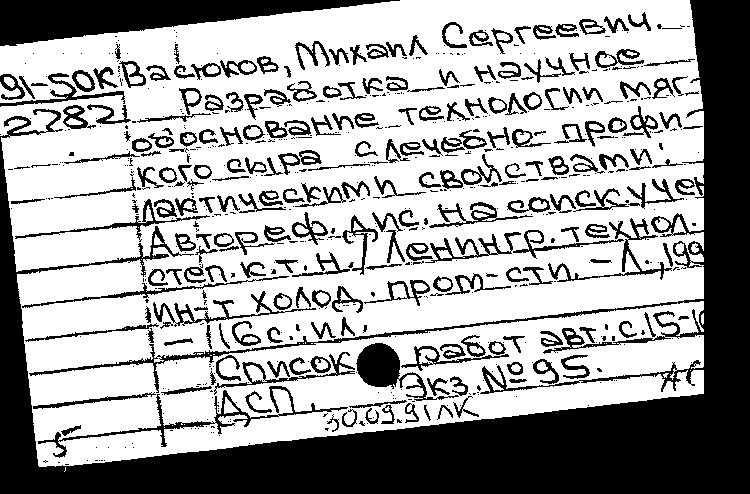 91-50к Васюков, Михаил Сергеевич.
2282 Разработка и научное
обоснование технологии мяг-
кого сыра с лечебно-профи-
лактическими свойствами:
Автореф. дис. на соиск. учен
степ. к.т.н. / Ленингр. технол.
ин-т холод. пром-сти. – Л., 199
— 16 с.: ил.
Список работ авт.: с. 15-1
ДСП. Экз. №95.
АС
30.09.91 ЛК
5